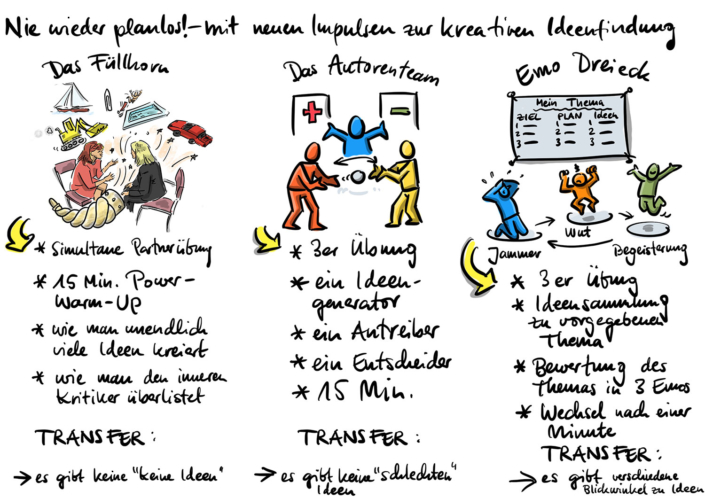 Nie wieder planlos! - mit neuen Impulsen zur kreativen Ideenfindung
Das Füllhorn
* Simultane Partnerübung
* 15 Min. Power-
Warm-Up
* wie man unendlich
viele Ideen kreiert
* wie man den inneren
Kritiker überlistet
TRANSFER:
→ es gibt keine "keine Ideen"
Das Autorenteam
+
-
* 3er Übung
* ein Ideen-
generator
* ein Antreiber
* ein Entscheider
* 15 Min.
TRANSFER:
→ es gibt keine "schlechten"
Ideen
Emo Dreieck
Mein Thema
ZIEL PLAN Ideen
1 1 1
2 2 2
3 3 3
Jammer
Wut
Begeisterung
* 3er Übung
* Ideensammlung
zu vorgegebenen
Thema
* Bewertung des
Themas in 3 Emos
* Wechsel nach einer
Minute
TRANSFER:
→ es gibt verschiedene
Blickwinkel zu Ideen